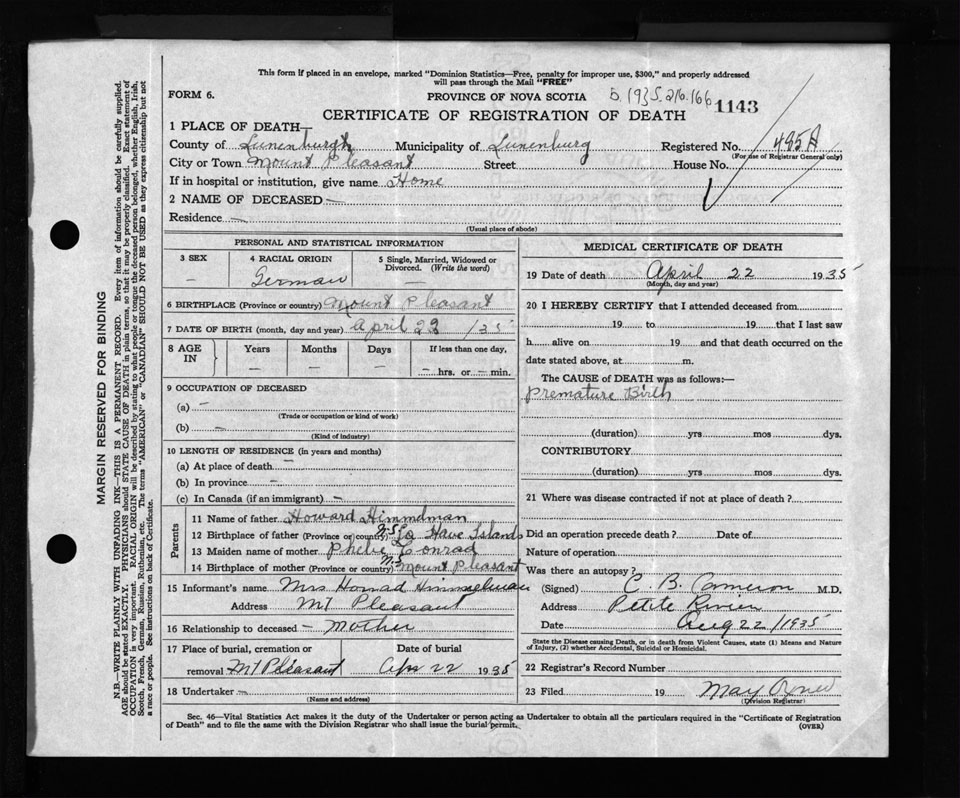 This form if placed in an envelope, marked "Dominion Statistics—Free, penalty for improper use, $300," and properly addressed
will pass through the Mail "FREE"
FORM 6.
PROVINCE OF NOVA SCOTIA
1143
CERTIFICATE OF REGISTRATION OF DEATH
1 PLACE OF DEATH—
County of Lunenburgh Municipality of Lunenburg Registered No. 495A
(For use of Registrar General only)
City or Town Mount Pleasant Street House No.
If in hospital or institution, give name Home
2 NAME OF DECEASED —
Residence —
(Usual place of abode)
PERSONAL AND STATISTICAL INFORMATION
3 SEX
—
4 RACIAL ORIGIN
German
5 Single, Married, Widowed or
Divorced. (Write the word)
—
6 BIRTHPLACE (Province or country) Mount Pleasant
7 DATE OF BIRTH (month, day and year) April 22 /35
8 AGE IN
Years Months Days If less than one day,
— — — — hrs. or — min.
9 OCCUPATION OF DECEASED
(a) —
(Trade or occupation or kind of work)
(b) —
(Kind of industry)
10 LENGTH OF RESIDENCE (in years and months)
(a) At place of death —
(b) In province —
(c) In Canada (if an immigrant) —
Parents
11 Name of father Howard Himmdman
12 Birthplace of father (Province or country) N.S. La Have Islands
13 Maiden name of mother Phebe Conrad
14 Birthplace of mother (Province or country) Mount Pleasant
15 Informant's name Mrs Howad Himmelman
Address Mt Pleasant
16 Relationship to deceased — Mother
17 Place of burial, cremation or
removal Mt Pleasant
Date of burial
Apr 22 1935
18 Undertaker —
(Name and address)
MEDICAL CERTIFICATE OF DEATH
19 Date of death April 22 1935
(Month, day and year)
20 I HEREBY CERTIFY that I attended deceased from
19 to 19 that I last saw
h alive on 19 and that death occurred on the
date stated above, at m.
The CAUSE of DEATH was as follows:—
Premature Birth
(duration) yrs mos dys.
CONTRIBUTORY
(duration) yrs mos dys.
21 Where was disease contracted if not at place of death?
Did an operation precede death? Date of
Nature of operation
Was there an autopsy?
(Signed) C. B. Cameron M.D,
Address Petite Rivier
Date Aug 22/1935
State the Disease causing Death, or in death from Violent Causes, state (1) Means and Nature
of Injury, (2) whether Accidental, Suicidal or Homicidal.
22 Registrar's Record Number
23 Filed 19 May
(Division Registrar)
Sec. 46—Vital Statistics Act makes it the duty of the Undertaker or person acting as Undertaker to obtain all the particulars required in the "Certificate of Registration
of Death" and to file the same with the Division Registrar who shall issue the burial permit.
(OVER)
MARGIN RESERVED FOR BINDING
N.B.—WRITE PLAINLY WITH UNFADING INK—THIS IS A PERMANENT RECORD. Every item of information should be carefully supplied.
AGE should be stated EXACTLY. PHYSICIANS should STATE CAUSE OF DEATH in plain terms, so that it may be properly classified. Exact statement of
OCCUPATION is very important. RACIAL ORIGIN will be described by stating to what people or tongue the deceased person belonged, whether English, Irish,
Scotch, French, German, Russian, Ruthenian, etc. The terms "AMERICAN" or "CANADIAN" SHOULD NOT BE USED as they express citizenship but not
a race or people. See instructions on back of Certificate.